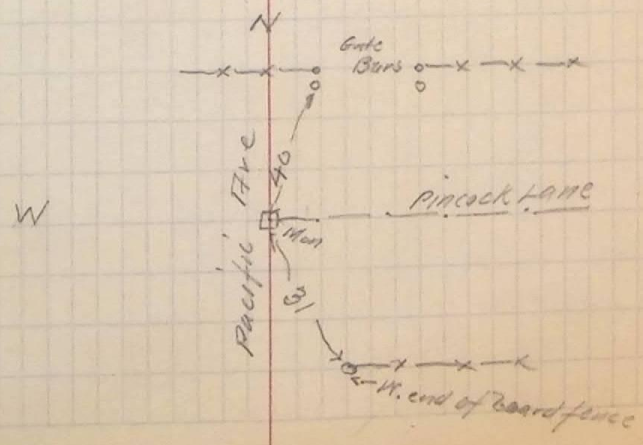 N
Gate
Bars
40
Pacific Ave
W
Pincock Lane
Mon
31
W. end of board fence